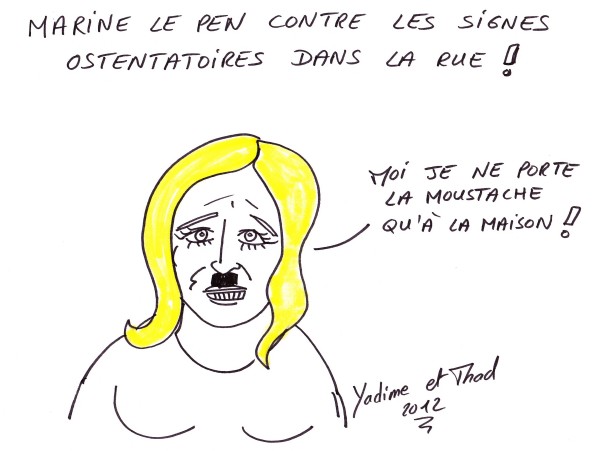 MARINE LE PEN CONTRE LES SIGNES
OSTENTATOIRES DANS LA RUE !
MOI JE NE PORTE
LA MOUSTACHE
QU'À LA MAISON !
Yadime et Thod
2012